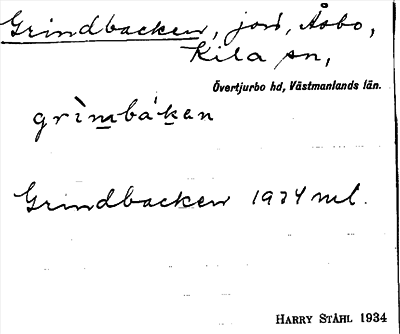 Grindbacken, jord, Åsbo,
Kila sn,
Övertjurbo hd, Västmanlands län.
grìmbákan
Grindbacken 1934 ml.
HARRY STÅHL 1934